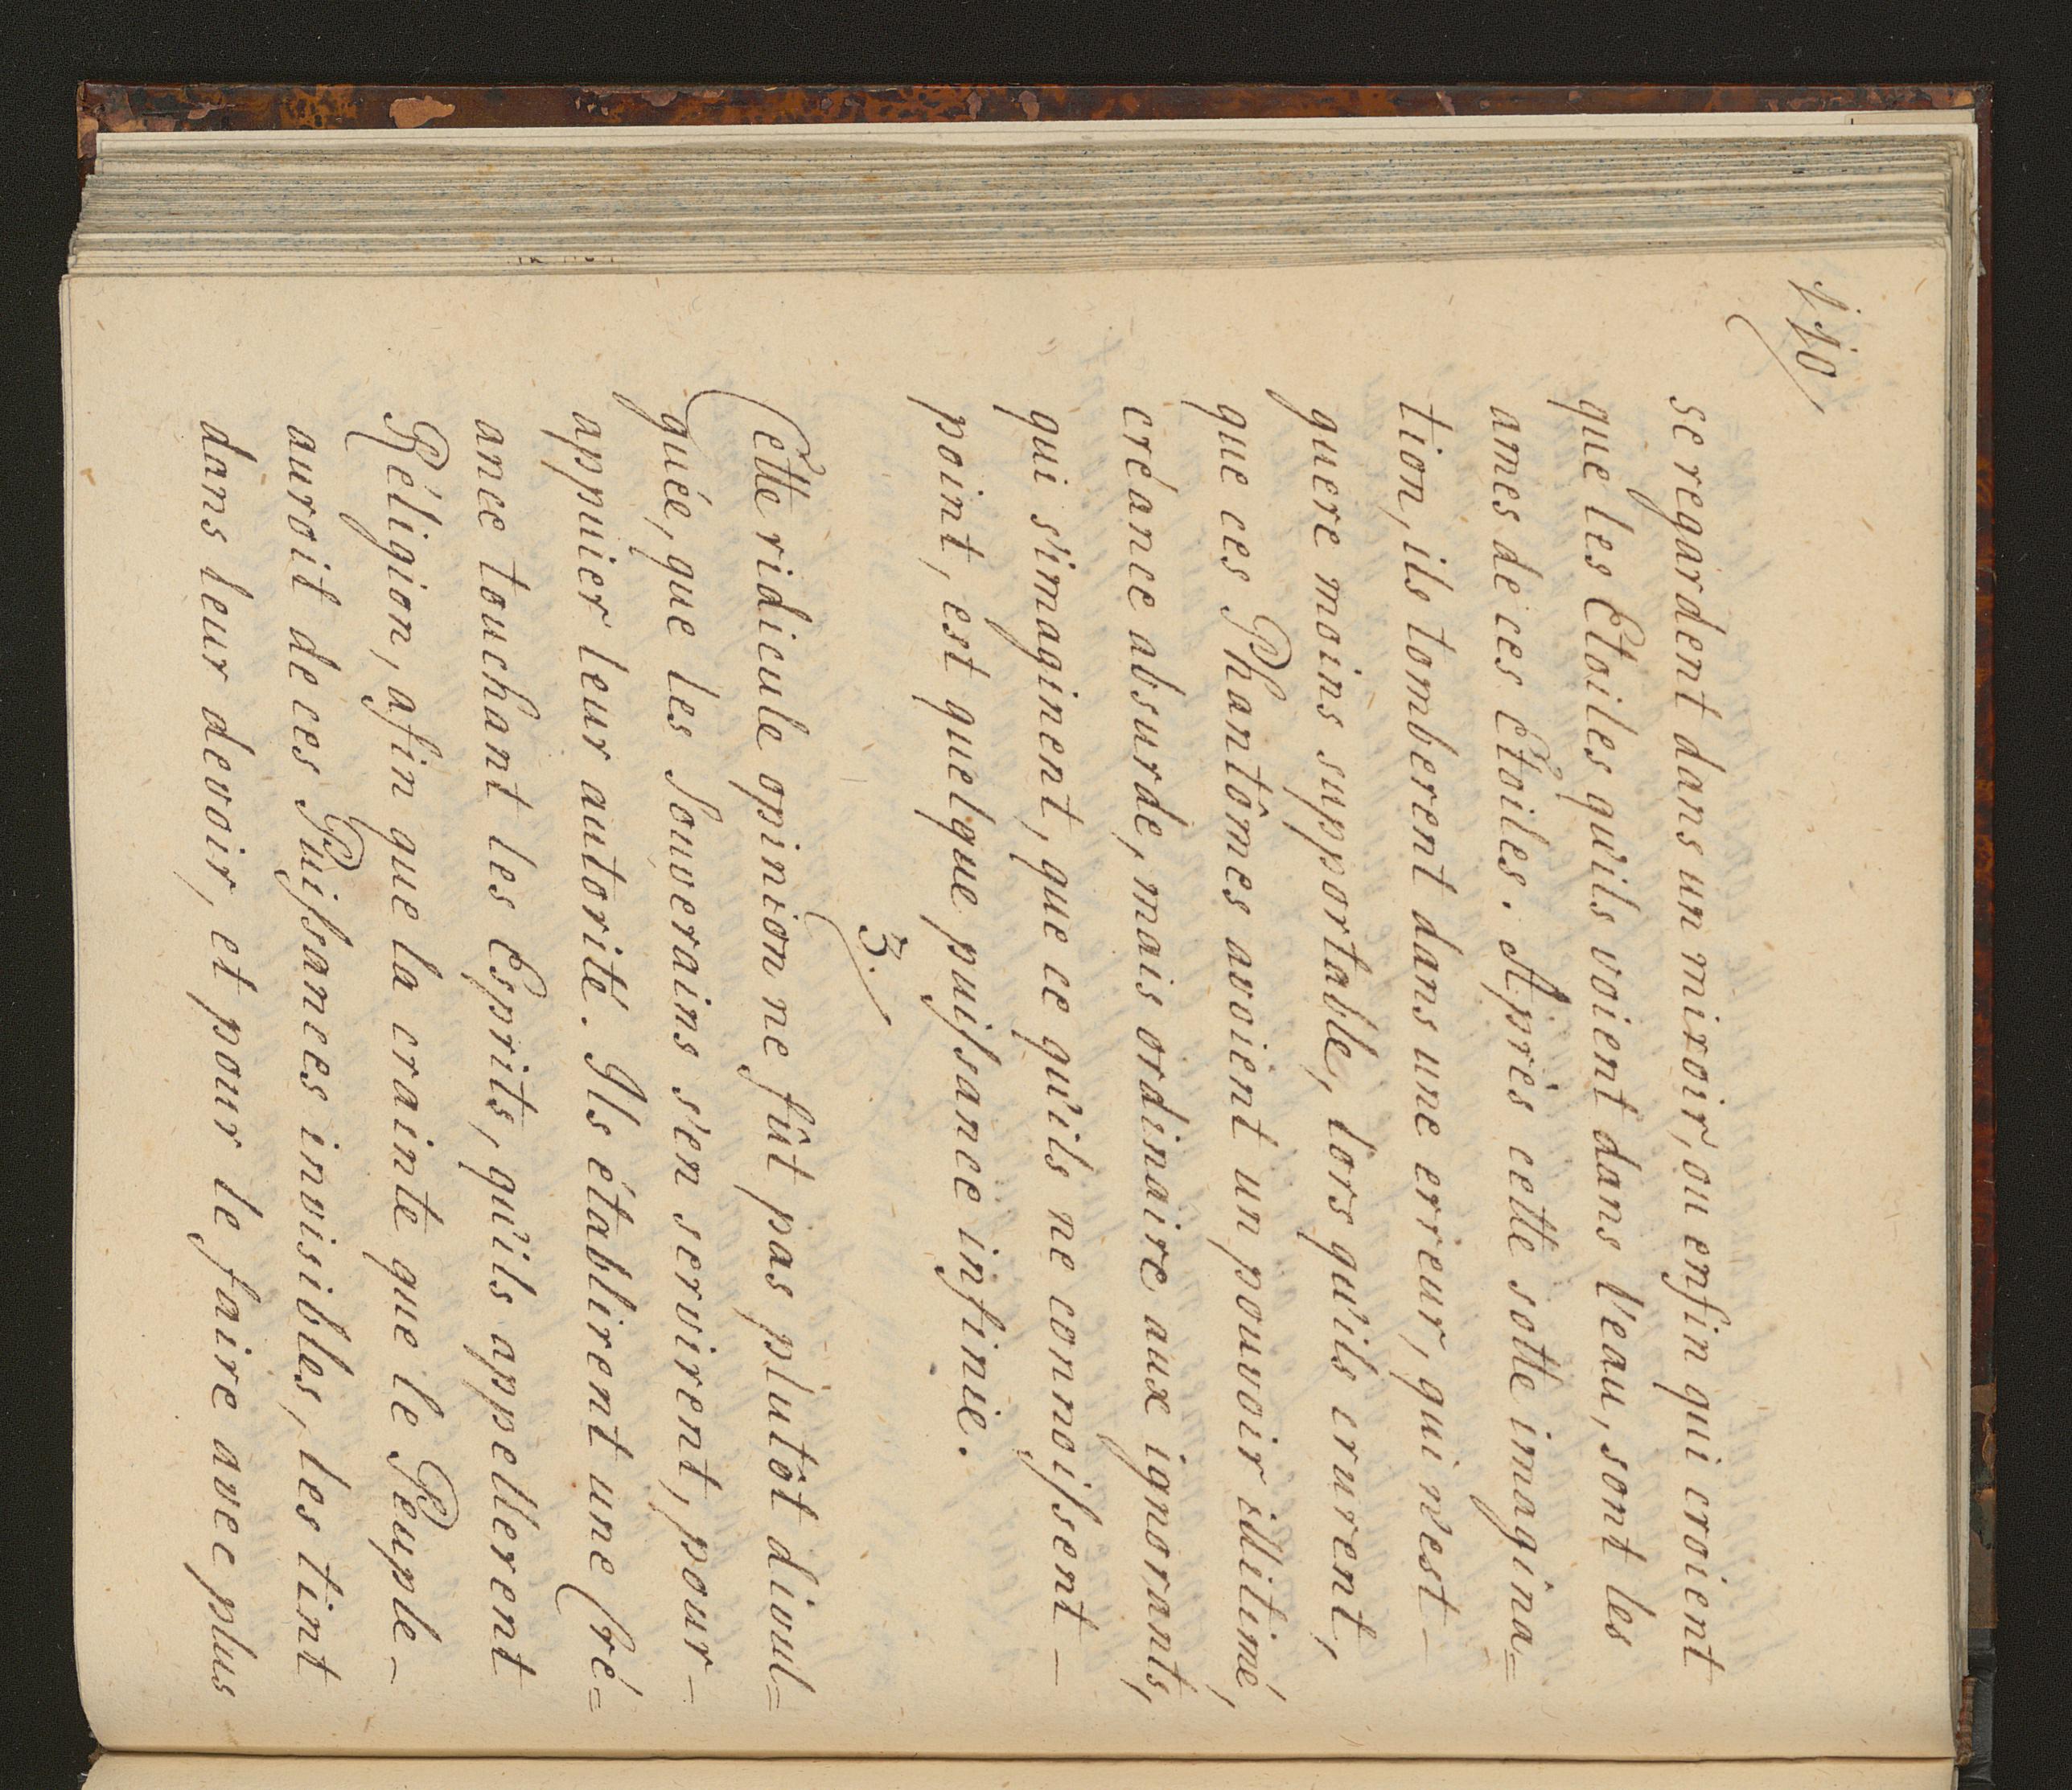 110
se regardent dans un miroir, ou enfin qui croient
que les Etoiles qu'ils voient dans l'eau, sont les
ames de ces Etoiles. Après cette sotte imagina=
tion, ils tomberent dans une erreur, qui n'est –
guere moins supportable, lors qu'ils crurent,
que ces Phantômes avoient un pouvoir illitimé,
créance absurde, mais ordinaire aux ignorants,
qui s'imaginent, que ce qu'ils ne connoissent –
point, est quelque puissance infinie.
3.
Cette ridicule opinion ne fût pas plutôt divul=
guée, que les Souverains s'en servirent, pour –
appuier leur autorité. Ils établirent une Cré=
ance touchant les Esprits, qu'ils appellerent
Réligion, afin que la crainte que le Peuple –
auroit de ces Puissances invisibles, les tint
dans leur devoir, et pour le faire avec plus